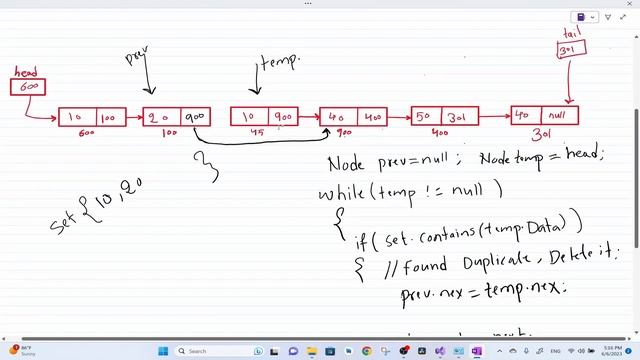 tail
301
prev
temp.
head
600
10 100
20 900
10 900
40 400
50 301
40 null
600
100
45
900
400
301
set {10,20
}
Node prev=null; Node temp=head;
while(temp != null)
{
if(set.contains(temp.Data))
{ //found Duplicate, Delete it;
prev.nex=temp.nex;
86°F
Sunny
Search
ENG
5:16 PM
6/6/2023